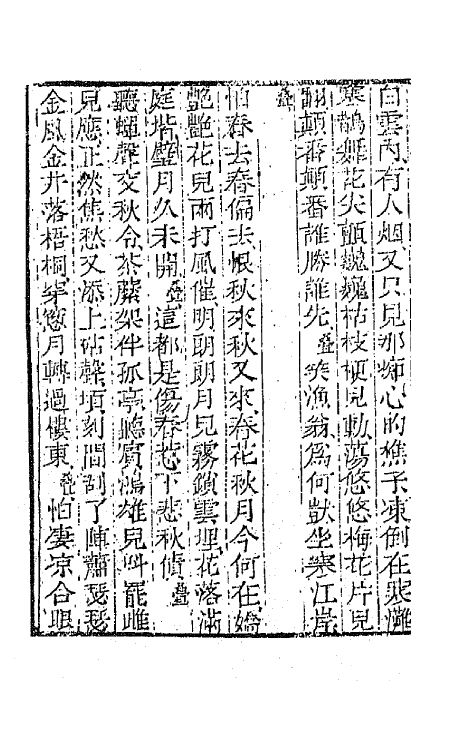 白雲內有人烟又只見那痴心的樵子凍倒在寒灘
寒鵲舞花尖顫巍巍枯枝梗兒動蕩悠悠梅花片兒
翻顛番顛番誰勝誰先疊笑漁翁爲何獃坐寒江岸
疊
怕春去春偏去恨秋來秋又來春花秋月今何在嬌
艷艷花兒雨打風催明朗朗月兒霧鎖雲埋花落滿
庭堦壁月久未開疊這都是傷春悲下悲秋債疊
聽蟬聲交秋令荼蘼架伴孤亭聽賓鴻雄兒呌罷雌
兒應正然焦愁又添上砧聲頃刻間刮了陣蕭瑟瑟
金風金井落梧桐穿窓月轉過樓東疊怕凄凉合眼